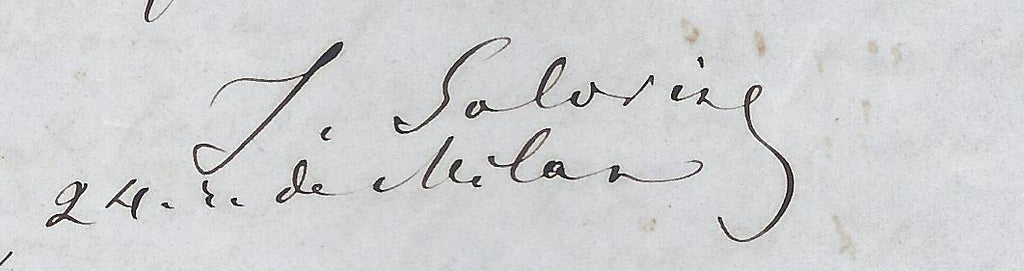 J. Solovine
24. r. de Milan